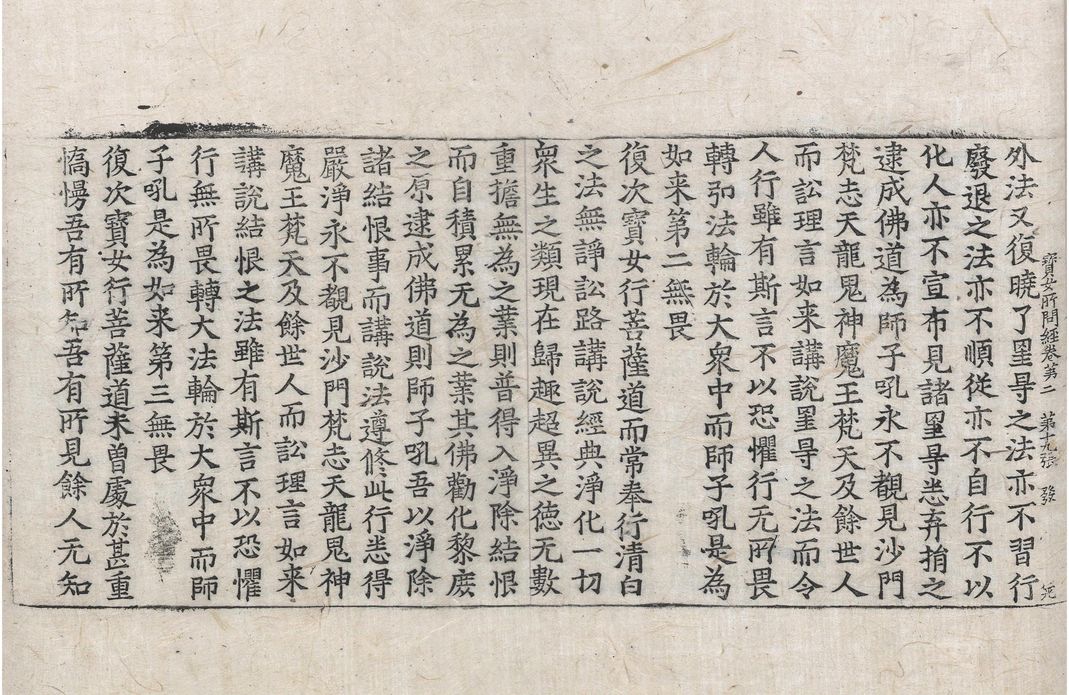 寶女所問經卷第二　第十九張　發
外法又復曉了罣㝵之法亦不習行
廢退之法亦不順從亦不自行不以
化人亦不宣布見諸罣㝵悉弃捐之
逮成佛道為師子吼永不覩見沙門
梵志天龍鬼神魔王梵天及餘世人
而訟理言如来講說罣㝵之法而令
人行雖有斯言不以恐懼行无所畏
轉於法輪於大衆中而師子吼是為
如来第二無畏
復次寶女行菩薩道而常奉行清白
之法無諍訟路講說經典淨化一切
衆生之類現在歸趣超異之德无數
重擔無為之業則普得入淨除結恨
而自積累无為之業其佛勸化黎庶
之原逮成佛道則師子吼吾以淨除
諸結恨事而講說法遵修此行悉得
嚴淨永不覩見沙門梵志天龍鬼神
魔王梵天及餘世人而訟理言如来
講說結恨之法雖有斯言不以恐懼
行無所畏轉大法輪於大衆中而師
子吼是為如来第三無畏
復次寶女行菩薩道未曾處於甚重
憍慢吾有所知吾有所見餘人无知